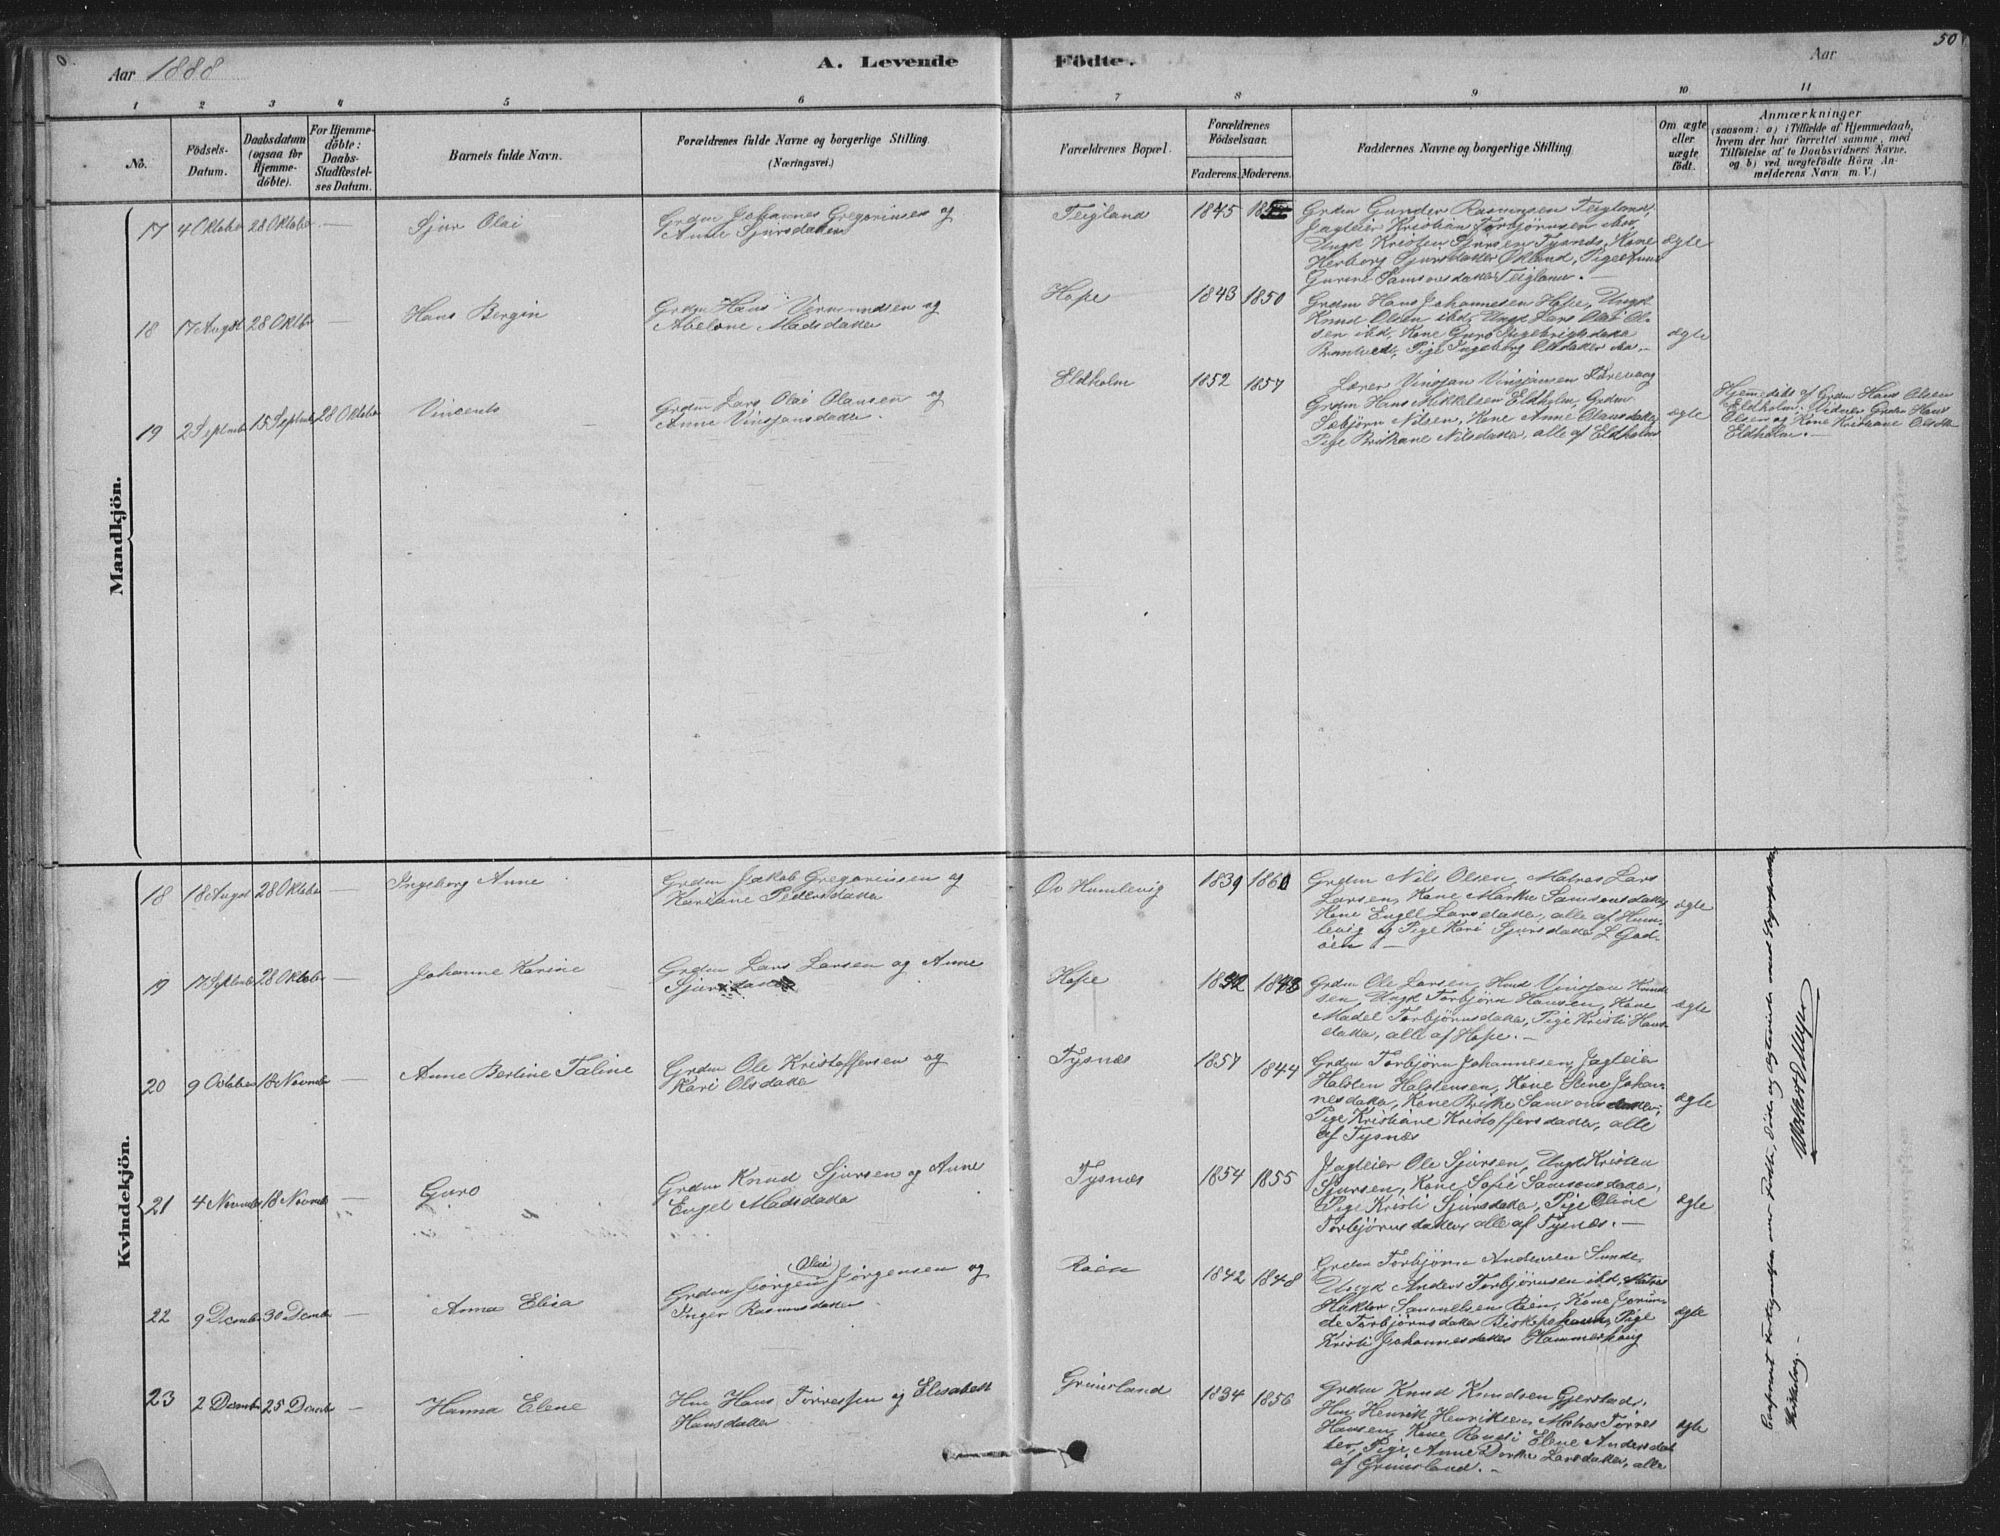 50
Aar 1888
A. Levende Födte.
Aar
1 2 3 4 5 6 7 8 9 10 11
No.
Födsels-
Datum.
Daabsdatum
(ogsaa for
Hjemme-
döbte).
For Hjemme-
döbte:
Daabs-
Stadfæstel-
ses Datum.
Barnets fulde Navn.
Forældrenes fulde Navne og borgerlige Stilling
(Næringsvei.)
Forældrenes Bopæl.
Forældrenes
Födselsaar.
Faderens. Moderens.
Faddernes Navne og borgerlige Stilling
Om ægte
eller
uægte
født.
Anmærkninger
(saasom: a) i Tilfælde af Hjemmedaab,
hvem der har forrettet samme, med
Tilföielse af to Daabsvidners Navne,
og b) ved uægtefödte Börn An-
melderens Navn m. V.)
Mandkjön.
17 4 Oktober 28 Oktober —
Sjur Olai
Grdm Johannes Gregoriusen og
Anne Sjursdatter
Teigland
1845
Grdm Gunder Rasmussen Teigland,
Jagteier Kristian Torbjørnsen ibd,
Ungk Kristen Sjursen Tysnes, Kone
Herborg Sjursdatter Økland, Pige Anne
Gurine Samsonsdatter Teigland. —
ægte
18 17 Augst 28 Oktbr —
Hans Bergin
Grdm Hans Vermundsen og
Abelone Madsdatter
Hope
1843 1850
Grdm Hans Johannesen Hope, Ungk
Knud Olsen ibd, Ungk Lars Olai Ol-
sen ibd, Kone Guro
Pige Ingeborg Olsdatter
ægte
19 2 Septembr 15 Septembr 28 Oktober
Vincents
Grdm Lars Olai Olausen og
Anne Vinsjansdatter.
Eldholm
1852 1857
Lærer Vinsjan Vinsjansen Færevaag
Grdm Hans Mikkelsen Eldholm, Grdm
Sæbjørn Nilsen, Kone Anne Olausdatter
Pige Brithane Nilsdatter, alle af Eldholm
ægte
Hjemmedøbt af Grdm Hans Olsen
Eldholm. Vidner Grdm Hans
Olsen og Kone Kristiane Olsdtr
Eldholm. —
Kvindekjön.
18 18 Augst 28 Oktober —
Ingeborg Anne
Grdm Jakob Gregoriussen og
Kariane Pedersdatter
Øv Humlevig
1839 1860
Grdm Nils Olsen, Matros Lars
Larsen, Kone Marthe Samsonsdatter,
Kone Engel Larsdatter, alle af Hum-
levig og Pige Kari Sjursdatter L God-
øien. —
ægte
19 17 Septembr 28 Oktober —
Johanne Karine
Grdm Lars Larsen og Anne
Sjursdatter
Hope
Grdm Ole Larsen, Hmd Vinsjan Knud-
sen, Ungk Torbjørn Hansen, Kone
Madel Torbjørnsdatter, Pige Kristi Hans-
datter, alle af Hope. —
ægte
20 9 October 18 Novembr —
Anne Bertine Taline
Grdm Ole Kristoffersen og
Kari Olsdatter
Tysnæs
1857 1844
Grdm Torbjørn Johannesen, Jagteier
Halsten Halstensen, Kone Eline Johan-
nesdatter, Kone Brithe Samsonsdatter,
Pige Kristiane Kristoffersdatter, alle
af Tysnæs
ægte
21 4 Novembr 18 Novembr —
Guro
Grdm Knud Sjursen og Anne
Engel Madsdatter
Tysnæs
1854 1855
Jagteier Ole Sjursen, Ungk Kristen
Sjursen, Kone Sofie Samsonsdatter,
Pige Kristi Sjursdatter, Pige Oline
Torbjørnsdatter, alle af Tysnæs. —
ægte
22 9 Decmbr 30 Decmbr —
Anna Elisa
Olai
Grdm Jørgen Jørgensen og
Inger Rasmusdatter
Røen
1842 1848
Grdm Torbjørn Andersen Sunde,
Ungk Anders Torbjørnsen ibd, Matros
Haktor Samuelsen Røen, Kone Jorun-
de Torbjørnsdatter Biskopshavn, Pige
Kristi Johannesdatter Hammerhaug
ægte
23 2 Decmbr 25 Decmbr —
Hanna Elene
Hm Hans Tørressen og Elisabeth
Hansdatter
Grimsland
1834 1856
Grdm Knud Knudsen Gjerstad,
Hm Henrik Henriksen, Matros Tørres
Hansen, Kone Randi Elene Andersdat-
ter, Pige Anne Dorthe Larsdatter, alle
af Grimsland. —
ægte